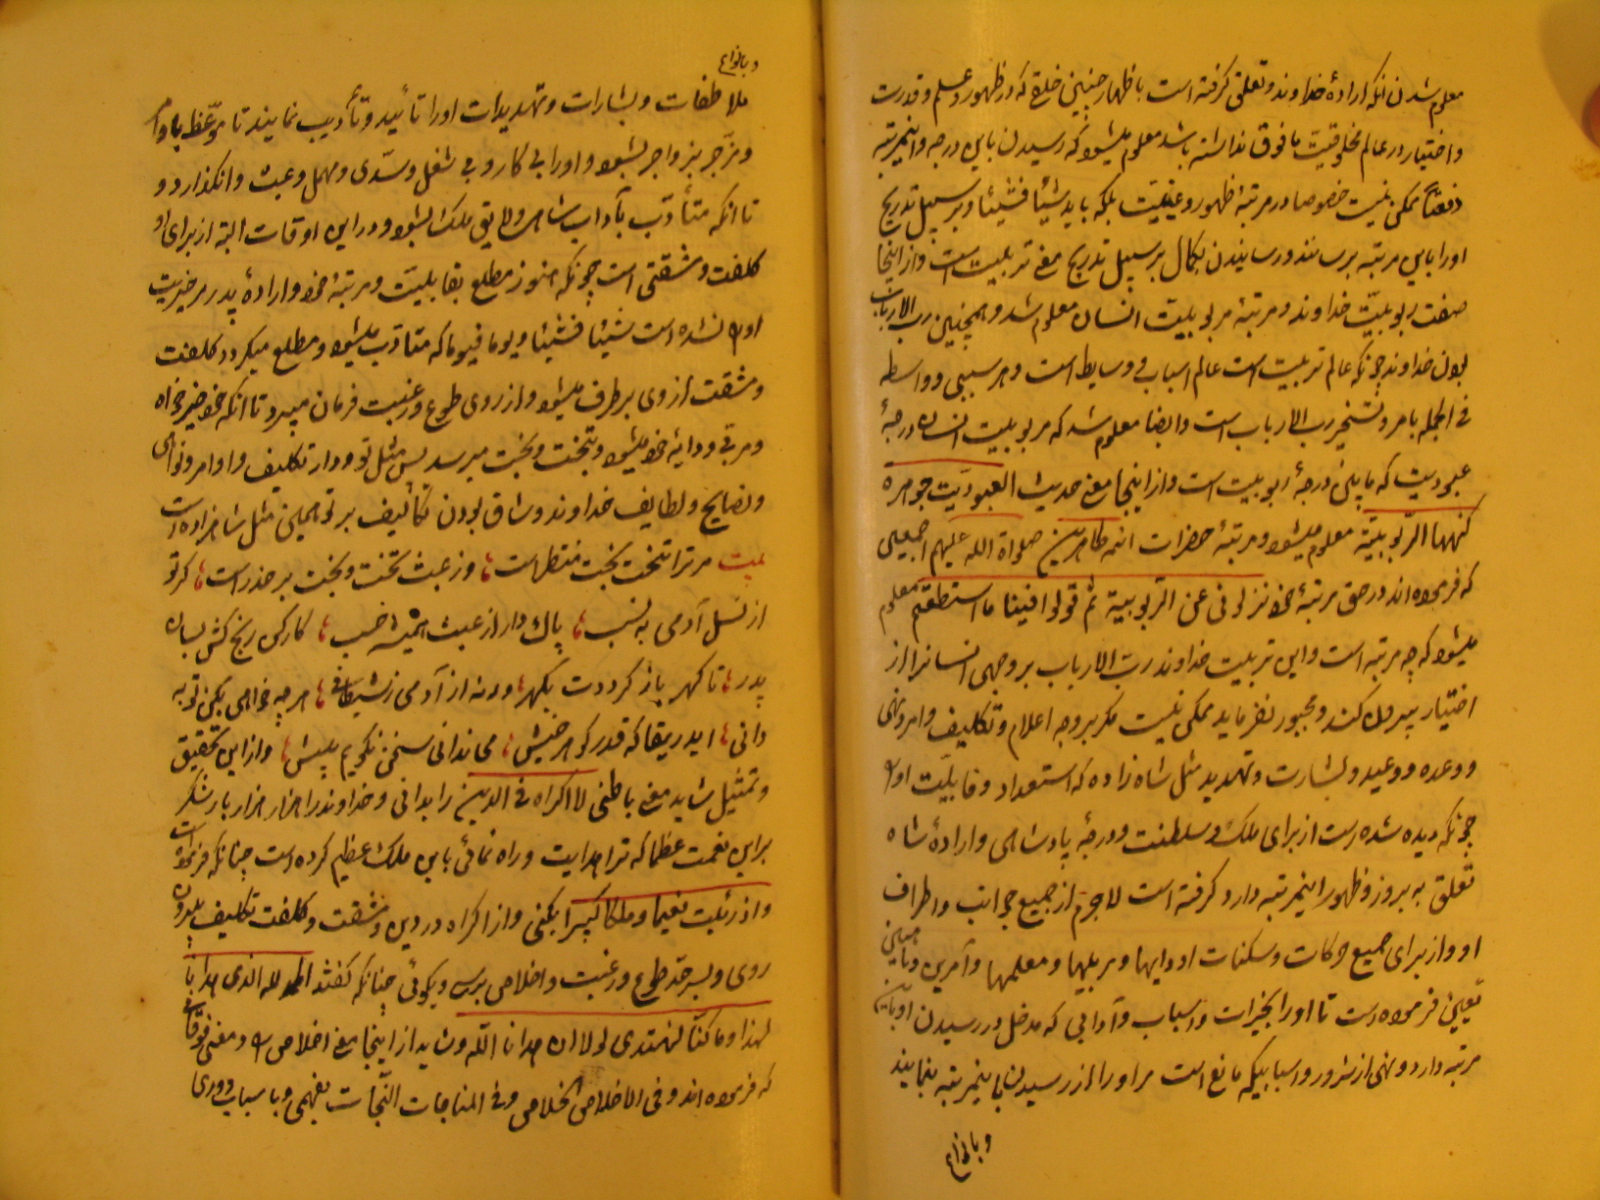 معلوم شدن انکه اراده خداوند و تعلق گرفته است باظهار چنین خلقی که در ظهور و علم و قدرت
و اختیار در عالم مخلوقیت مافوق نداشته باشد معلوم میشود که رسیدن باین درجه و اینمرتبه
دفعتاً ممکن نیست خصوصا در مرتبهٔ ظهور و عینیّت بلکه باید شیئا فشیئا و بر سبیل تدریج
اورا باین مرتبه برسانند و رسانیدن بکمال بر سبیل تدریج معنی تربیت است و از اینجا
صفت ربوبیّت خداوند و مرتبهٔ مربوبیّت انسان معلوم شد و همچنین رب الارباب
بودن خداوند چونکه عالم تربیت است عالم اسباب و وسایط است و هر سببی و واسطه
فی الجمله بامر و تسخیر رب الارباب است و ایضا معلوم شد که مربوبیت انسان درجهٔ
عبودیت که مابین درجهٔ ربوبیت است و از اینجا معنی حدیث العبودیّت جوهرة
کنهها الرّبوبیّة معلوم میشود و مرتبهٔ حضرات ائمه طاهرین صلواة الله علیهم اجمعین
که فرموده‌اند در حق مرتبهٔ خود نزلونی عن الربوبیة ثم قولوا فینا ما استطعتم معلوم
میشود که چه مرتبه است و این تربیت خداوند ربّ الارباب بر وجهی انسانرا از
اختیار بیرون کند و مجبور نفرماید ممکن نیست مگر بر وجه اعلام و تکلیف و امر و نهی
و وعده و وعید و بشارت و تهدید مثل شاه زاده که استعداد و قابلیّت او
چونکه دیده شده است از برای ملک و سلطنت و درجهٔ پادشاهی و ارادهٔ شاه
تعلق به بروز و ظهور اینمرتبه دارد گرفته است لاجرم از جمیع جوانب و اطراف
او و از برای جمیع حرکات و سکنات او دایها و مربیها و معلمها و آمرین و ناهین
تعیین فرموده است تا اورا بخیرات و اسباب و آدابی که مدخل در رسیدن او باین
مرتبه دارد و نهی از شرور و اسبابیکه مانع است مر اورا از رسیدن باینمرتبه بنمایند
و بانواع
و بانواع
ملاطفات و بشارات و تهدیدات اورا تأیید و تأدیب نمایند تا موعّظ باوامر
و مزجر بزواجر بشود و اورا بی کار و بی شغل و سدی و مهمل و عبث وانگذارد و
تا انکه متأدّب بآداب شاهی و لایق ملک بشود و در این اوقات البته از برای او
کلفت و مشقتی است چونکه هنوز مطلع بقابلیّت و مرتبهٔ خود و ارادهٔ پدر مر خیریت
اورا نشده است شیئا فشیئا و یوما فیوما که متأدّب میشود و مطلع میگردد کلفت
و مشقت از وی برطرف میشود و از روی طوع و رغبت فرمان میبرد تا انکه خود خیرخواه
و مربی و دایهٔ خود میشود و بتخت و بخت میرسد پس مثل تو و دار تکلیف و اوامر و نواهی
و نصایح و لطایف خداوند و شاق بودن تکالیف بر تو همین مثل شاهزاده است
بیت مر ترا تخت بخت منتظر است و ز عبث تخت و بخت بر حذر است گر تو
از نسل آدمی به نسب پاک دار از عبث همیشه حسب کار کن رنج کش بسان
پدر تا گهر باز گرددت بگهر ورنه از آدمی ز شیطانی هر چه خواهی بکن تو به
دانی ای دریغا که قدر گوهر خویش می ندانی سخن نگویم بیش و از این تحقیق
و تمثیل شاید معنی باطنی لا اکراه فی الدین را بدانی و خداوند را هزار هزار بار شکر
بر این نعمت عظما که ترا هدایت و راه نمائی باین ملک عظیم کرده است چنانکه فرموده است
و اذ رئیت نعیما و ملکا کبیرا بکنی و از اکراه در دین و مشقت و کلفت تکلیف بیرون
روی و بسر حدّ طوع و رغبت و اخلاص برسی و بگوئی چنانکه گفتند الحمد لله الذی هدانا
لهذا و ما کنّا لنهتدی لولا ان هدانا الله و شاید از اینجا معنی اخلاص
که فرموده‌اند و فی الاخلاص الخلاص و فی المناجات النّجات بفهمی و باسباب دوری